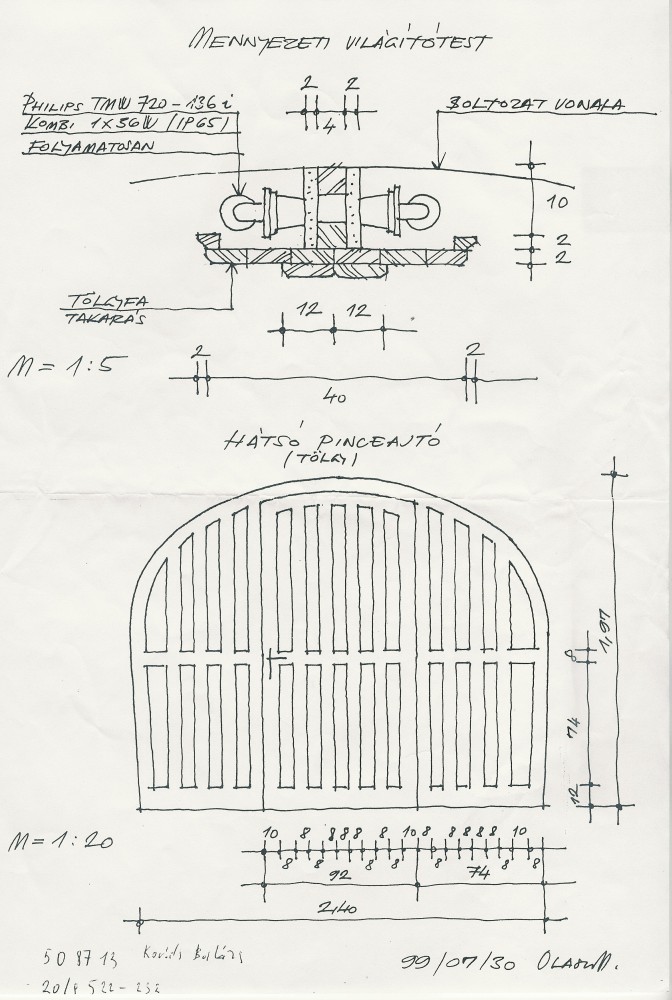 MENNYEZETI VILÁGÍTÓTEST
2 2
4
PHILIPS TMW 720-136 i
KOMBI 1X36W (IP65)
FOLYAMATOSAN
BOLTOZAT VONALA
10
2
2
TÖLGYFA
TAKARÁS
12 12
M = 1:5
2 2
40
HÁTSÓ PINCEAJTÓ
(TÖLGY)
1,97
8
74
12
M = 1:20
10 8 8 8 8 8 10 8 8 8 8 8 10
8 8 8 8 8 8 8
92 74
2,40
50 87 13 Kovács Balázs
20/4 522-232
99/07/30